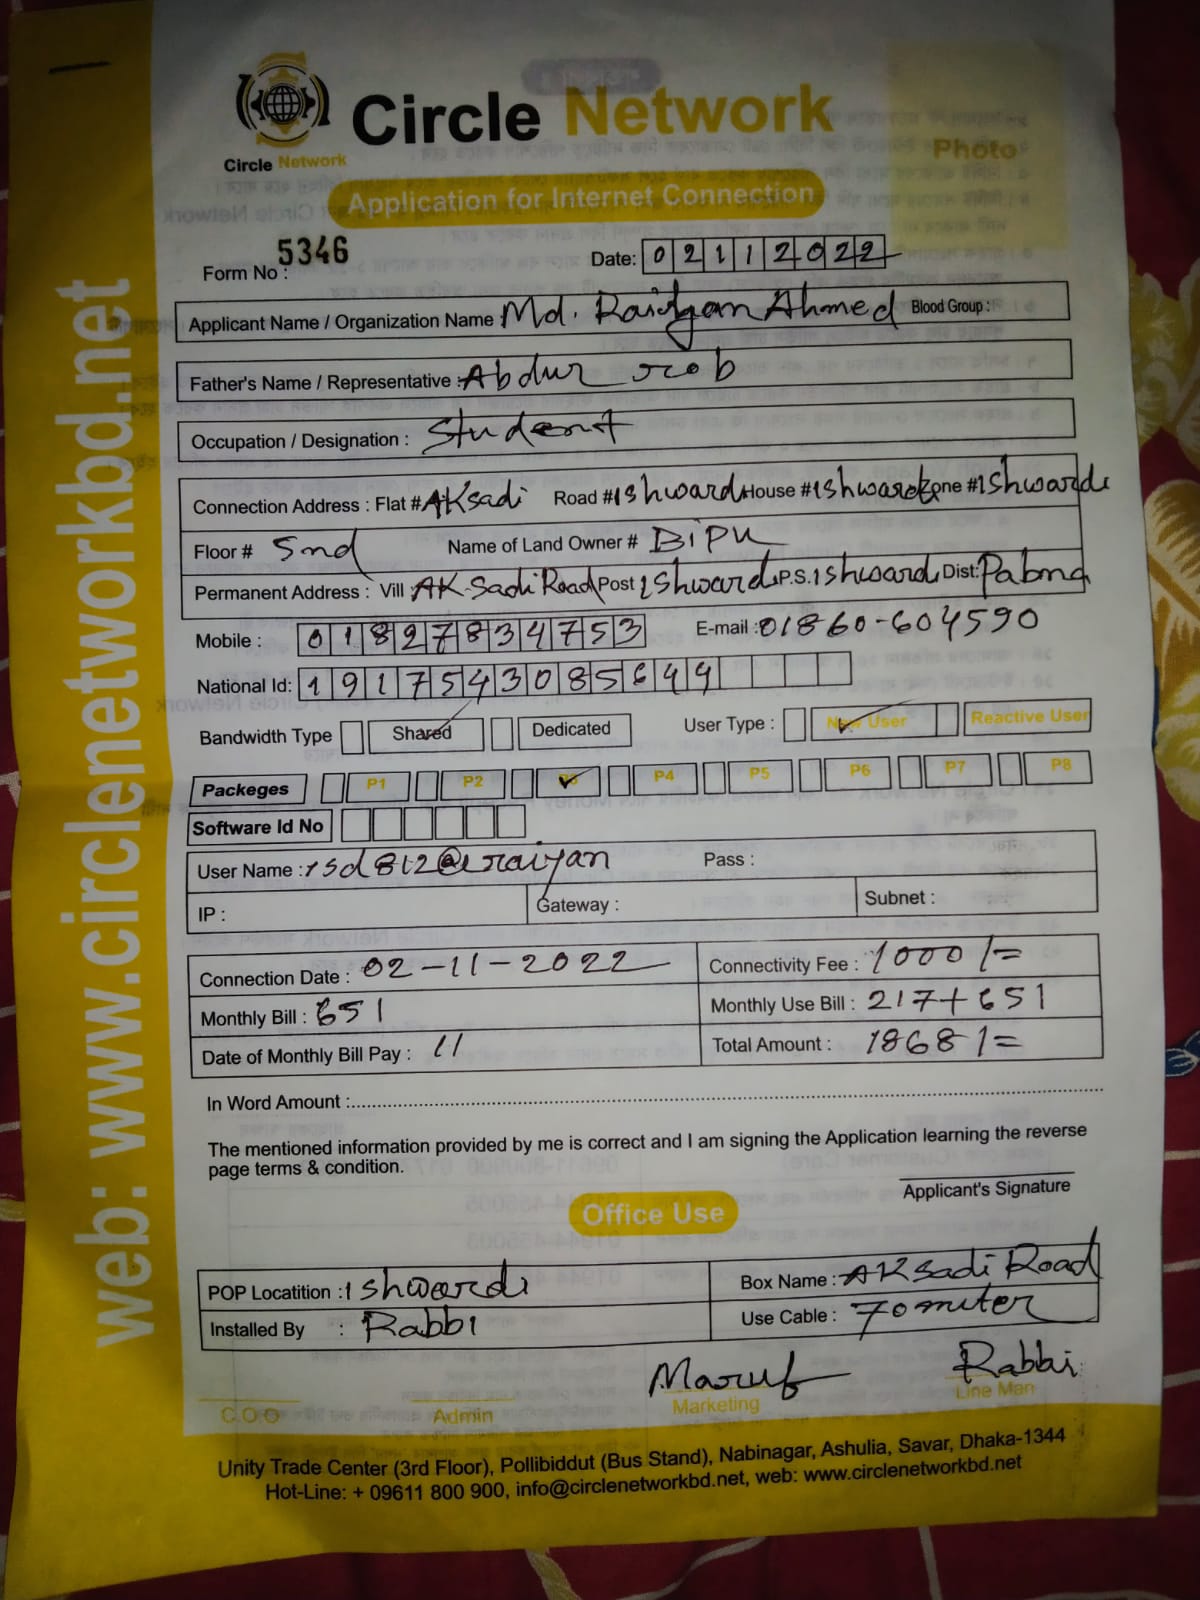 Circle Network
Circle Network
Photo
Application for Internet Connection
Form No : 5346
Date: 02112022
Applicant Name / Organization Name : Md. Raiyan Ahmed Blood Group :
Father's Name / Representative : Abdur rob
Occupation / Designation : Student
Connection Address : Flat # AKsadi Road # Ishwardi House # Ishwardi Zone # Ishwardi
Floor # 5nd Name of Land Owner # Bipu
Permanent Address : Vill : AK-Sadi Road Post Ishwardi P.S. Ishwardi Dist: Pabna
Mobile : 01827834753 E-mail : 01860-604590
National Id: 1917543085644
Bandwidth Type Shared Dedicated User Type : New User Reactive User
Packeges P1 P2 P3 P4 P5 P6 P7 P8
Software Id No
User Name : isd812@raiyan Pass :
IP : Gateway : Subnet :
Connection Date : 02-11-2022 Connectivity Fee : 1000/=
Monthly Bill : 651 Monthly Use Bill : 217+651
Date of Monthly Bill Pay : 11 Total Amount : 1868/=
In Word Amount :
The mentioned information provided by me is correct and I am signing the Application learning the reverse
page terms & condition.
Applicant's Signature
Office Use
POP Locatition : Ishwardi Box Name : AKsadi Road
Installed By : Rabbi Use Cable : 70 miter
Maruf Rabbi
C.O.O Admin Marketing Line Man
Unity Trade Center (3rd Floor), Pollibiddut (Bus Stand), Nabinagar, Ashulia, Savar, Dhaka-1344
Hot-Line: + 09611 800 900, info@circlenetworkbd.net, web: www.circlenetworkbd.net
web: www.circlenetworkbd.net